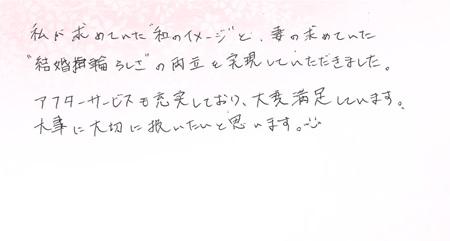 私が求めていた"和のイメージ"と、妻の求めていた
"結婚指輪らしさ"の両立を実現していただきました。
アフターサービスも充実しており、大変満足しています。
大事に大切に扱いたいと思います。